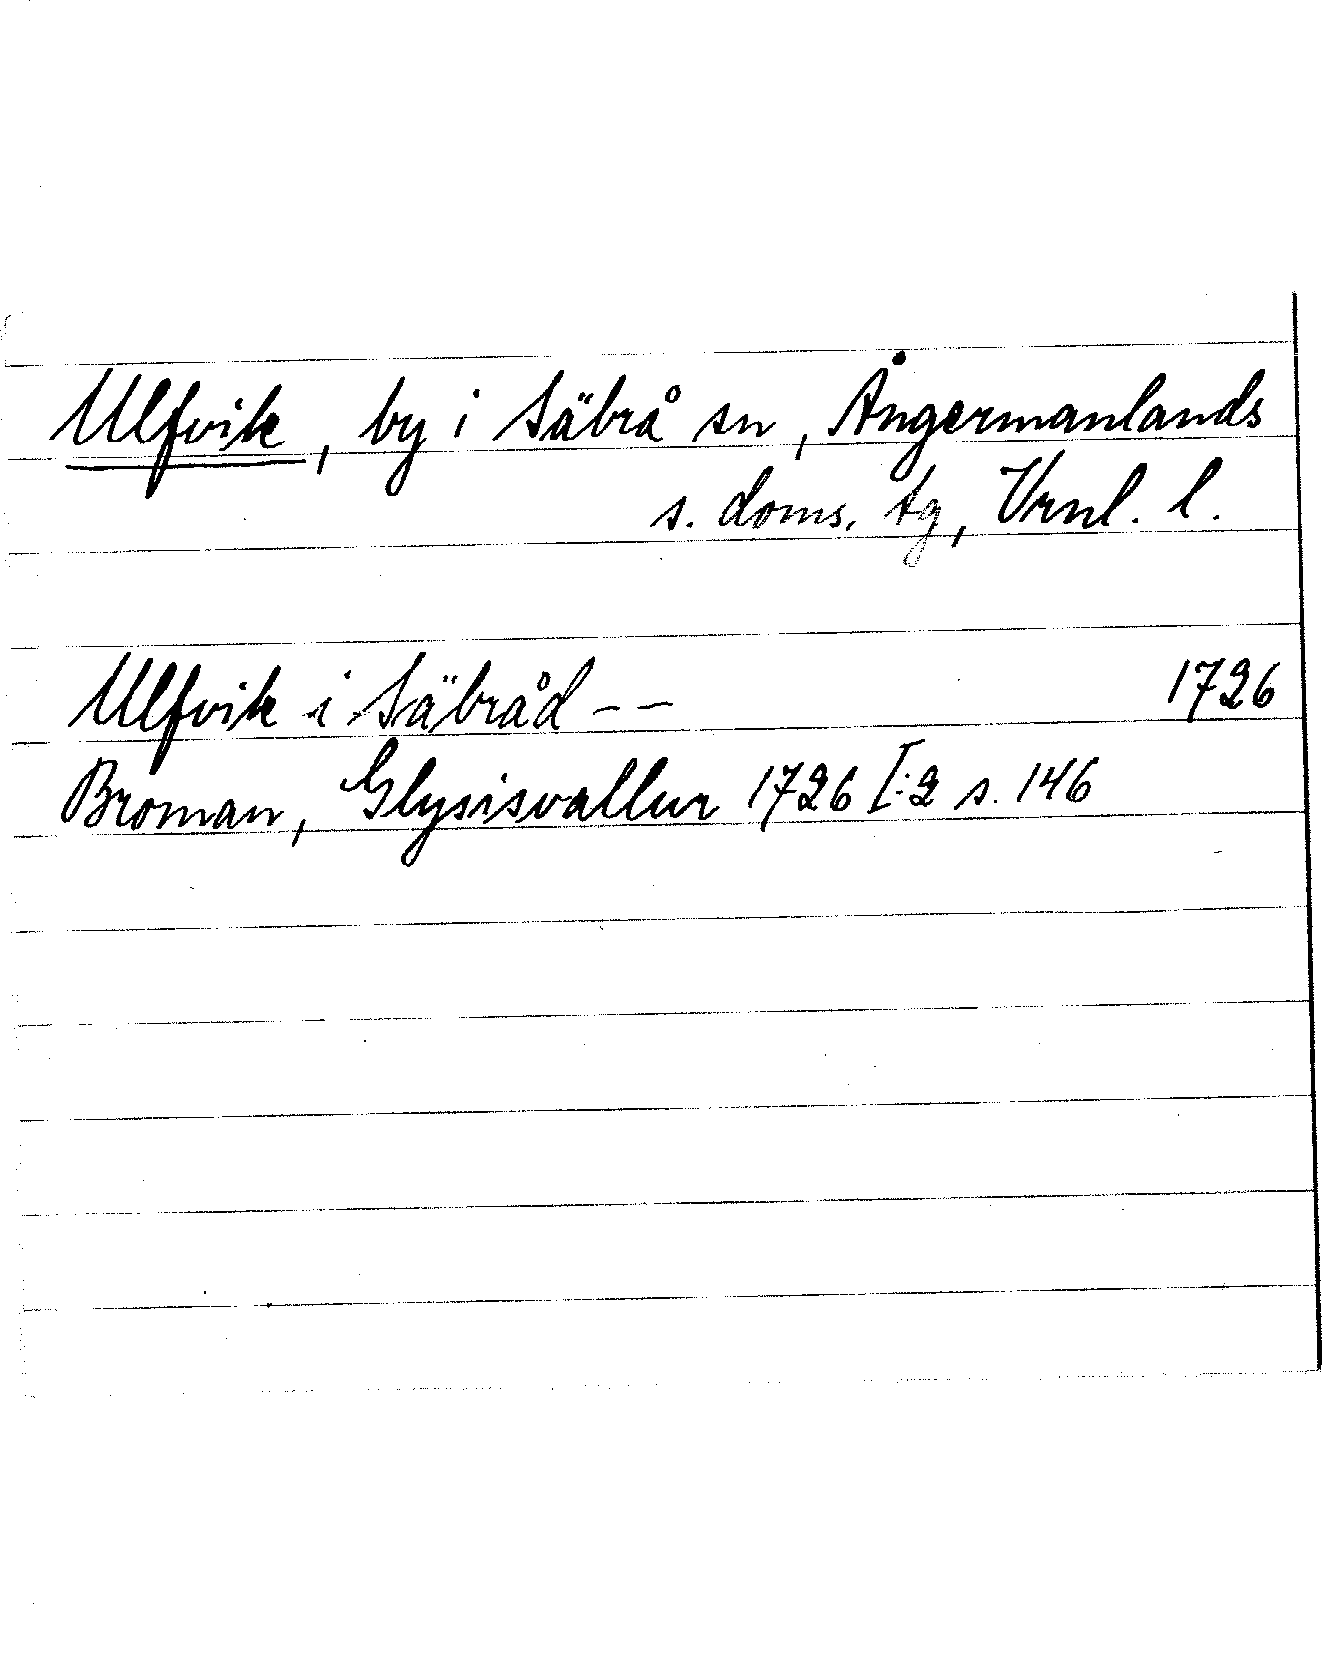 Ulfvik, by i Säbrå sn, Ångermanlands
s. doms. tg, Vrnl. l.
Ulfvik i Säbråd -- 1726
Broman, Glysisvallur 1726 I:2 s. 146